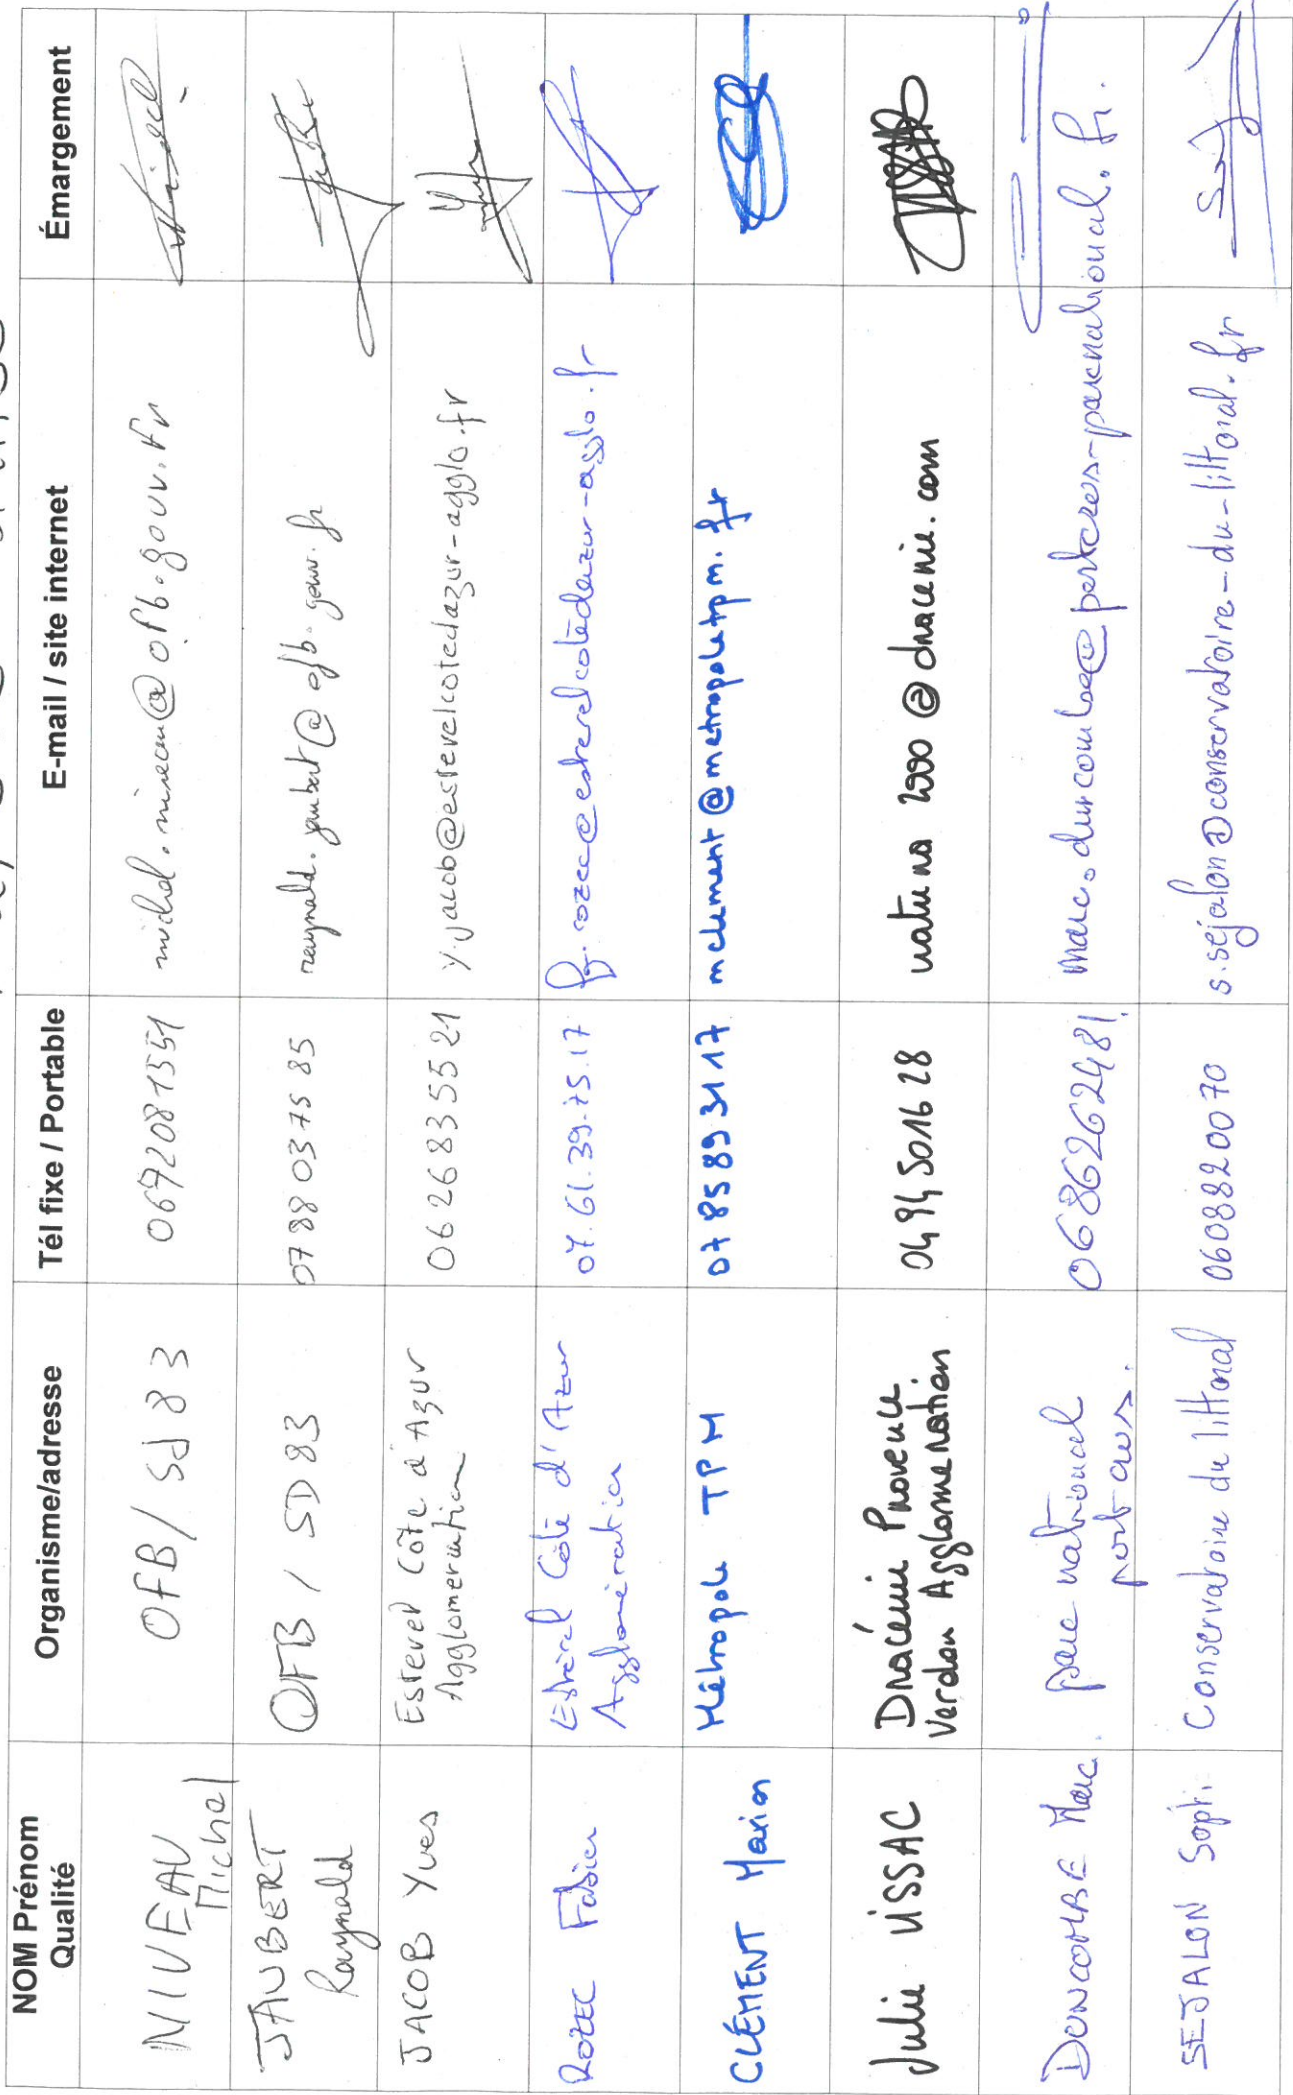 NOM Prénom
Qualité
Organisme/adresse
Tél fixe / Portable
E-mail / site internet
Émargement
NIVEAU
Michel
OFB / Sd 83
0672081551
@ofb.gouv.fr
JAUBERT
Raynald
OFB / SD83
07 88 03 75 85
raynald.jaubert@ofb.gouv.fr
JACOB Yves
Esterel Côte d'Azur
Agglomération
0626835521
y.jacob@esterelcotedazur-agglo.fr
ROZEC Fabien
Estérel Côte d'Azur
Agglomération
07.61.39.75.17
@esterelcotedazur-agglo.fr
CLÉMENT Maxim
Métropole TPM
07 85 89 31 17
mclement@metropoletpm.fr
Julie VISSAC
Dracénie Provence
Verdon Agglomération
04 94 50 16 28
natura 2000 @ dracenie.com
DUNCOMBE Marc.
parc national
port cros.
0686262481.
marc.duncombe@portcros-parcnational.fr.
SEJALON Sophi
Conservatoire du littoral
0608820070
s.sejalon@conservatoire-du-littoral.fr